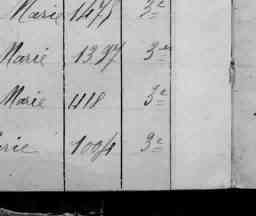 Marie 1475 3e
Marie 1397 3e
Marie 1118 3e
rie 1094 3e